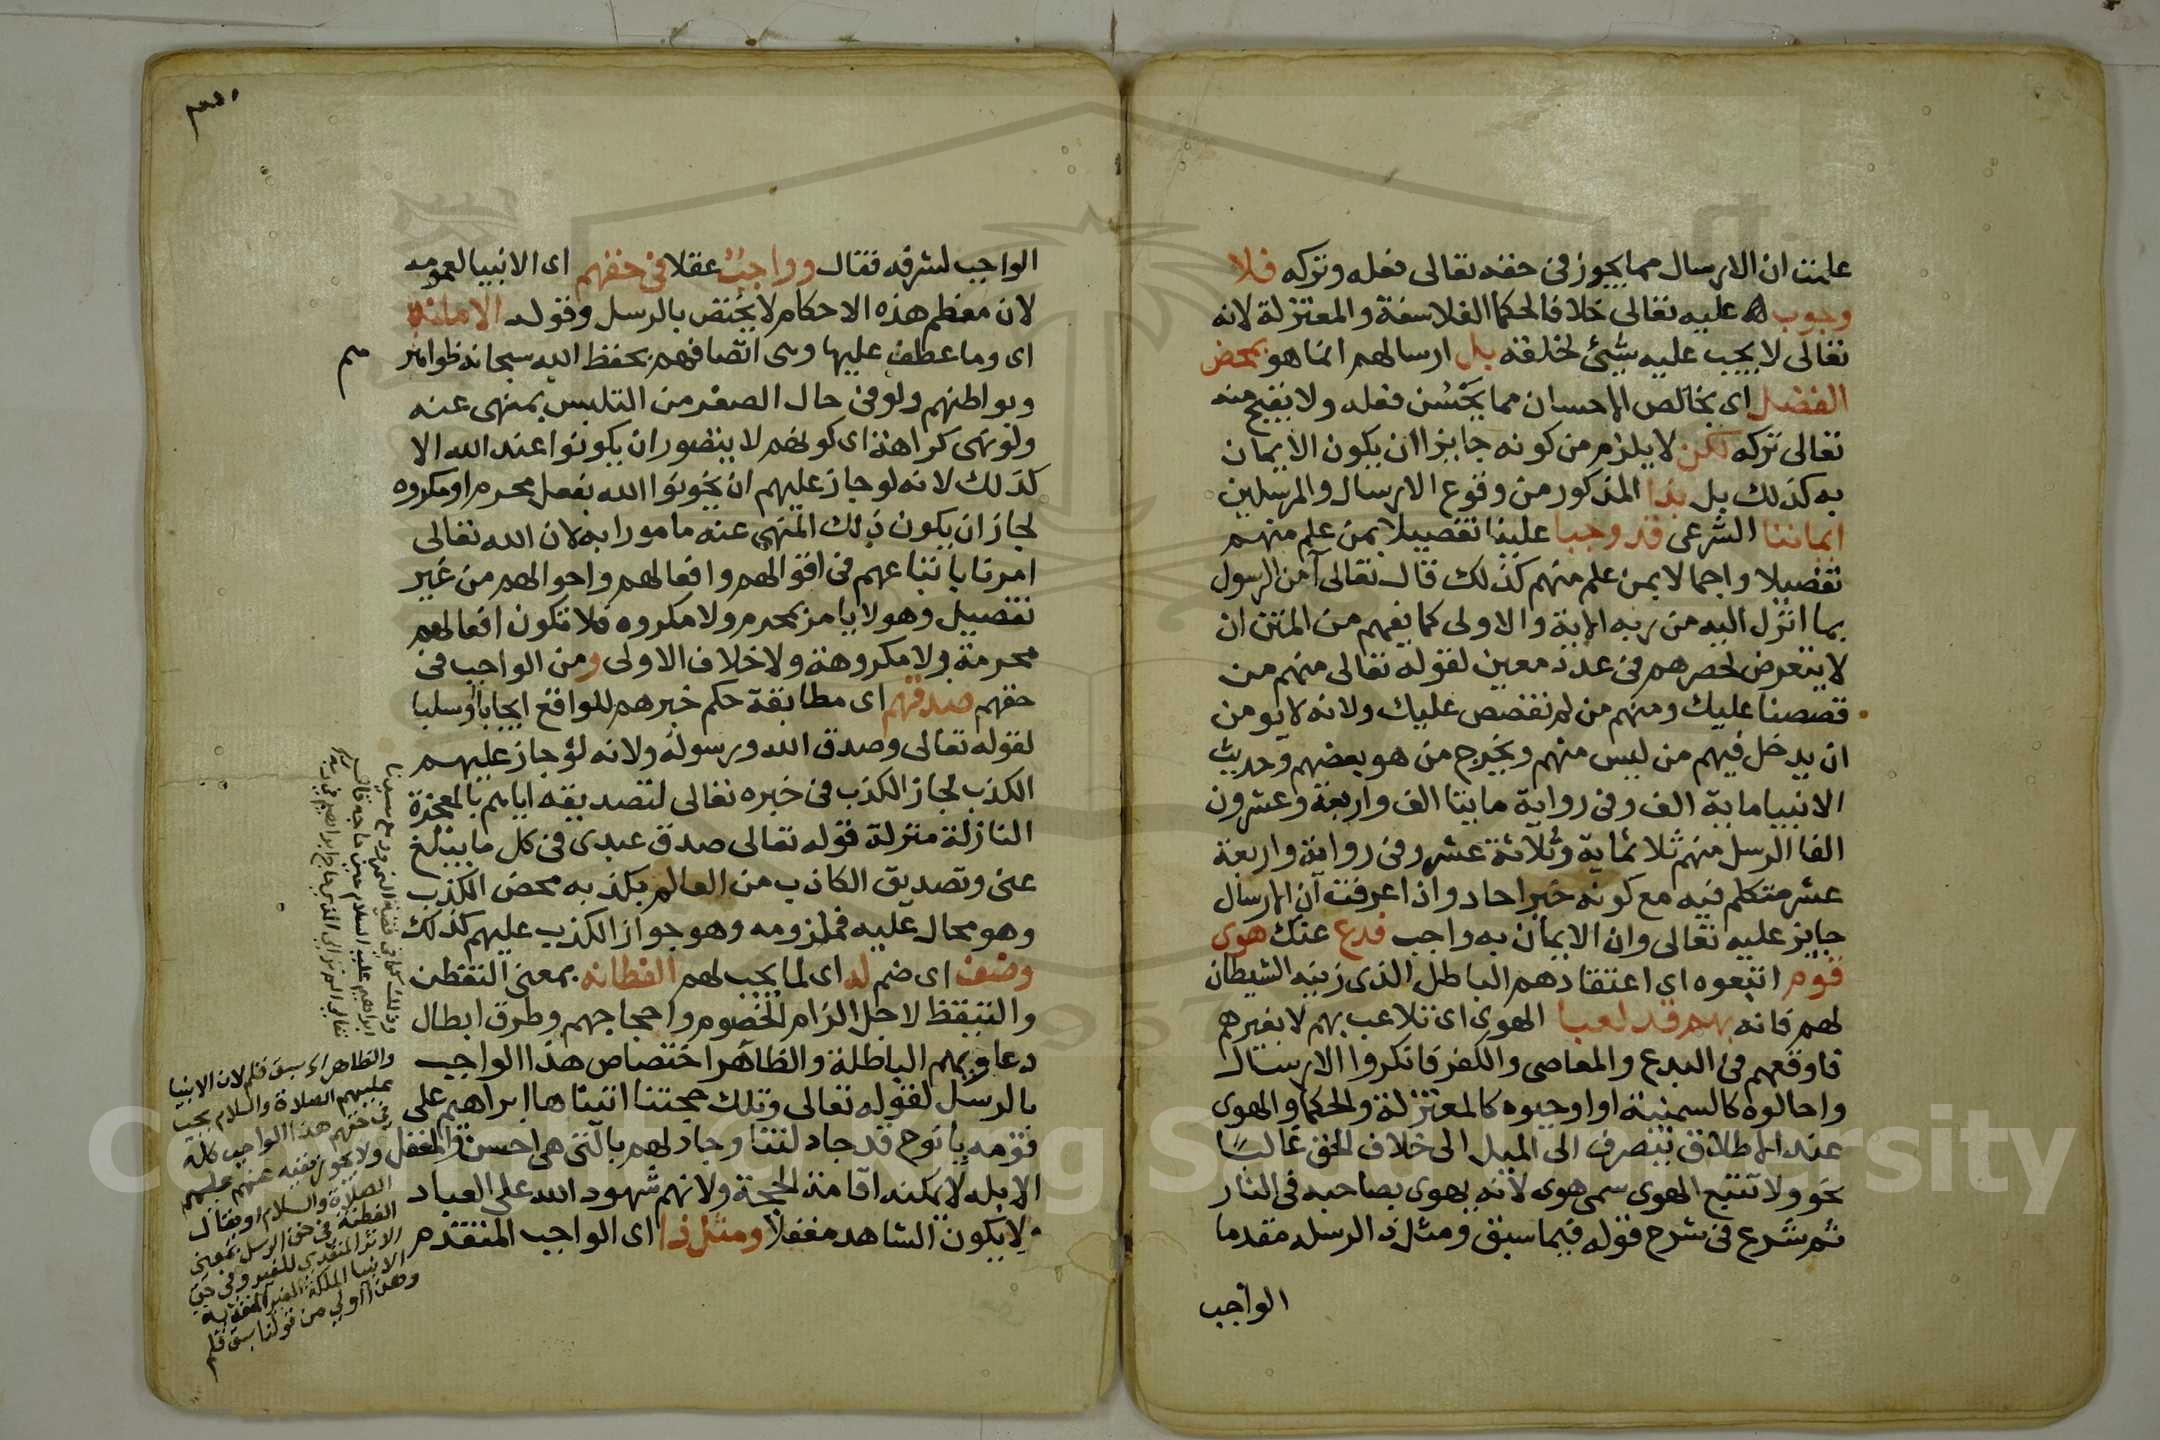 علمت ان الارسال مما يجوز في حقه تعالى فعله وتركه فلا
وجوب له عليه تعالى خلافا لحكما الفلاسفة والمعتزلة لانه
تعالى لا يجب عليه شيئ لخلقه بل ارسالهم انما هو بمحض
الفضل اى بخالص الاحسان مما يَحْسُن فعله ولا يقبح منه
تعالى تركه لكن لا يلزم من كونه جايزا ان يكون الايمان
به كذلك بل بذا المذكور من وقوع الارسال والمرسلين
ايماننا الشرعى قد وجبا علينا تفصيلا بمن علم منهم
تفصيلا واجمالا بمن علم منهم كذلك قال تعالى آمن الرسول
بما انزل اليه من ربه الاية والاولى كما يفهم من المتن ان
لا يتعرض لحصرهم في عدد معين لقوله تعالى منهم من
قصصنا عليك ومنهم من لم نقصص عليك ولانه لا يومن
ان يدخل فيهم من ليس منهم ويخرج من هو بعضهم وحديث
الانبيا ماية الف وفى رواية مايتا الف واربعة وعشرون
الفا الرسل منهم ثلاثماية وثلاثة عشر وفى رواية واربعة
عشر متكلم فيه مع كونه خبر احاد واذا عرفت ان الارسال
جايز عليه تعالى وان الايمان به واجب فدع عنك هوى
قوم اتبعوه اى اعتقادهم الباطل الذى زينه الشيطان
لهم فانه بهم قد لعبا الهوى اى تلاعب بهم لا بغيرهم
فاوقعهم فى البدع والمعاصى والكفر فانكروا الارسال
واحالوه كالسمنية او اوجبوه كالمعتزلة والحكما والهوى
عند الاطلاق ينصرف الى الميل الى خلاف الحق غالبًا
نحو ولا تتبع الهوى سمى هوى لانه يهوى بصاحبه فى النار
ثم شرع فى شرح قوله فيما سبق ومثل ذا لرسله مقدما
الواجب
الواجب لشرفه فقال وواجبٌ عقلا فى حقهم اى الانبيا لعمومه
لان معظم هذه الاحكام لا يختص بالرسل وقوله الامانة
اى وما عطف عليها وهى اتصافهم بحفظ الله سبحانه ظواهر
هم
وبواطنهم ولو فى حال الصغر من التلبس بمنهى عنه
ولو نهى كراهة اى كونهم لا يتصور ان يكونوا عند الله الا
كذلك لانه لو جاز عليهم ان يخونوا الله بفعل محرم او مكروه
لجاز ان يكون ذلك المنهى عنه مامورا به لان الله تعالى
امرنا باتباعهم فى اقوالهم وافعالهم واحوالهم من غير
تفصيل وهو لا يامر بمحرم ولا مكروه فلا تكون افعالهم
محرمة ولا مكروهة ولا خلاف الاولى ومن الواجب فى
حقهم صدقهم اى مطابقة حكم خبرهم للواقع ايجابا او سلبا
لقوله تعالى وصدق الله ورسوله ولانه لو جاز عليهم
الكذب لجاز الكذب فى خبره تعالى لتصديقه اياهم بالمعجزة
النازلة منزلة قوله تعالى صدق عبدى فى كل ما يبلغ
عنى وتصديق الكاذب من العالم بكذبه محض الكذب
وهو محال عليه فملزومه وهو جواز الكذب عليهم كذلك
وضف اى ضم له اى لما يجب لهم الفطانه بمعنى التفطن
والتيقظ لاجل الزام الخصوم واحجاجهم وطرق ابطال
دعاويهم الباطلة والظاهر اختصاص هذا الواجب
بالرسل لقوله تعالى وتلك حجتنا اتيناها ابراهيم على
قومه يا نوح قد جادلتنا وجادلهم بالتى هى احسن والمغفل
الابله لا يمكنه اقامة الحجة ولانهم شهود الله على العباد
ولا يكون الشاهد مغفلا ومثل ذا اى الواجب المتقدم
والظاهر اى سبق قلم لان الانبيا
عليهم الصلاة والسلام يجب
فى حقهم هذا الواجب كله
ولا يجوز نفيه عنهم عليهم
الصلاة والسلام او يقال
الفطنة فى حق الرسل بمعنى
الاثر المتعدى للغير وفى حق
الانبيا الملكة الغير المتعدية
وهذا اولى من قولنا سبق قلم